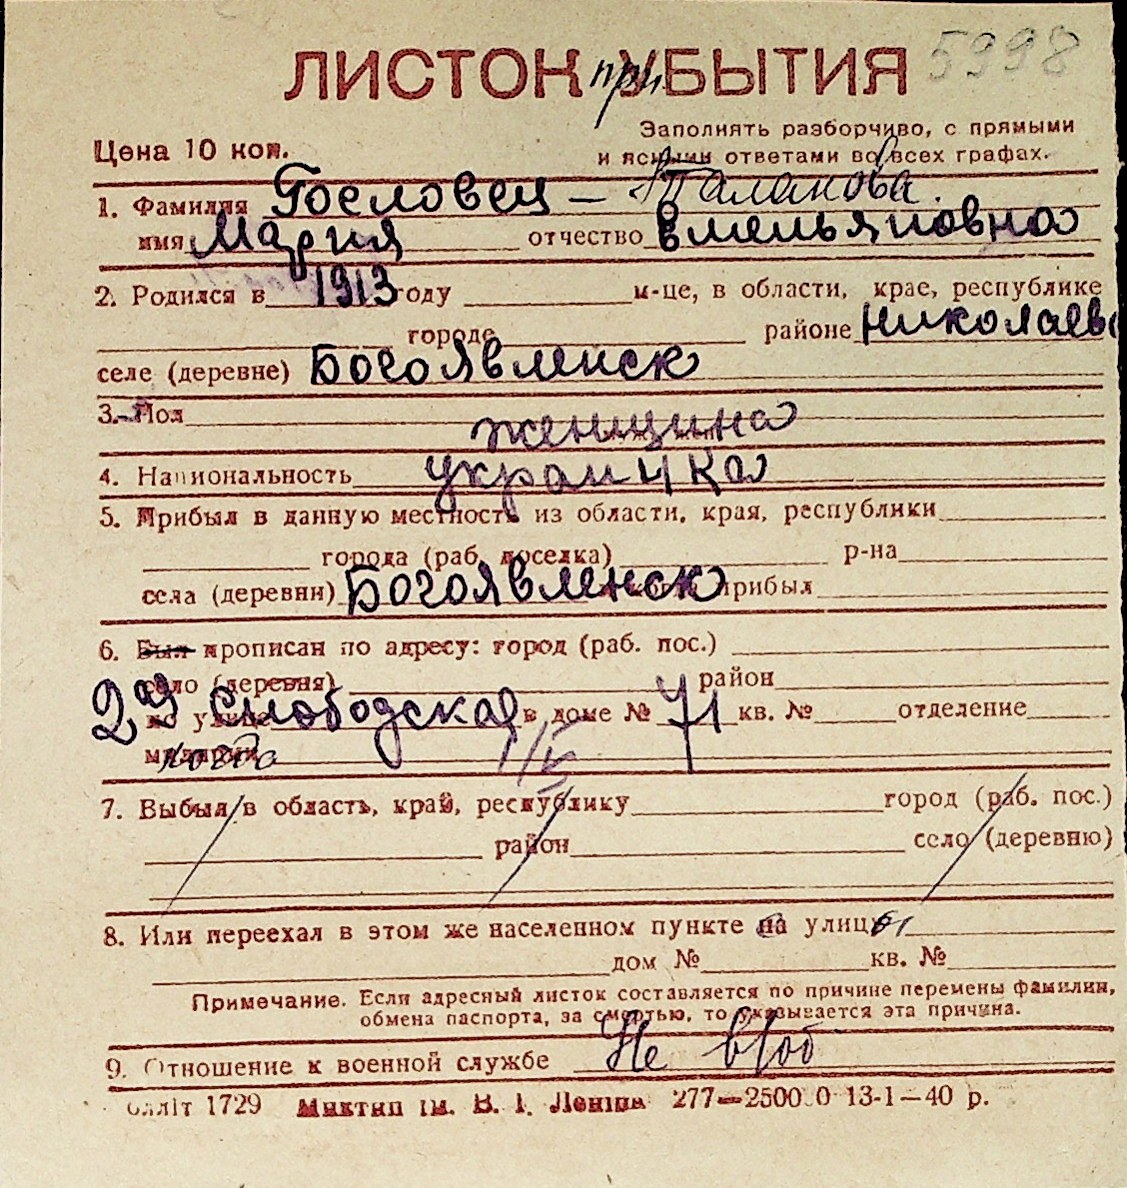 5998
ЛИСТОК при УБЫТИЯ
Заполнять разборчиво, с прямыми
Цена 10 коп.
и ясными ответами во всех графах.
1. Фамилия Гословец – Таланова
имя Мария отчество Емельяновна
2. Родился в 1913 году м-це, в области, крае, республике
городе районе Николаевс
селе (деревне) Богоявленск
3. Пол женщина
4. Национальность украинка
5. Прибыл в данную местность из области, края, республики
города (раб. поселка) р-на
села (деревни) Богоявленск прибыл
6. Был прописан по адресу: город (раб. пос.)
село (деревня) район
2ая Слободская в доме № 71 кв. № отделение
милиции
7. Выбыл в область, край, республику город (раб. пос.)
район село (деревню)
8. Или переехал в этом же населенном пункте на улицу
дом № кв. №
Примечание. Если адресный листок составляется по причине перемены фамилии,
обмена паспорта, за смертью, то указывается эта причина.
9. Отношение к военной службе Не в/об
Облліт 1729 Миктип ім. В. І. Леніна 277—25000 13-1—40 р.